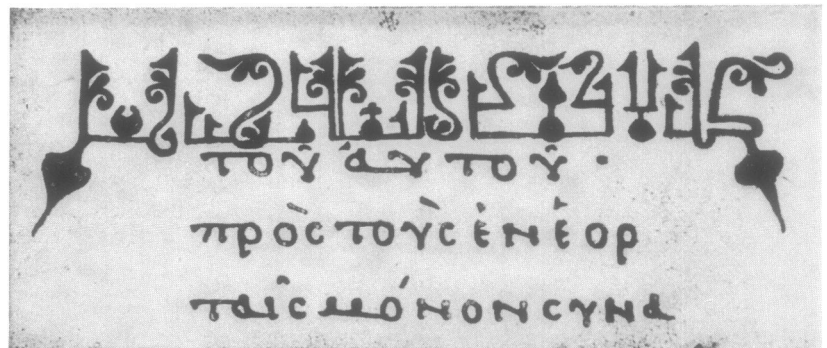 τοῦ ἀυτοῦ ·
πρὸς τοὺς ἐν ἑορ
ταῖς μόνον συνα